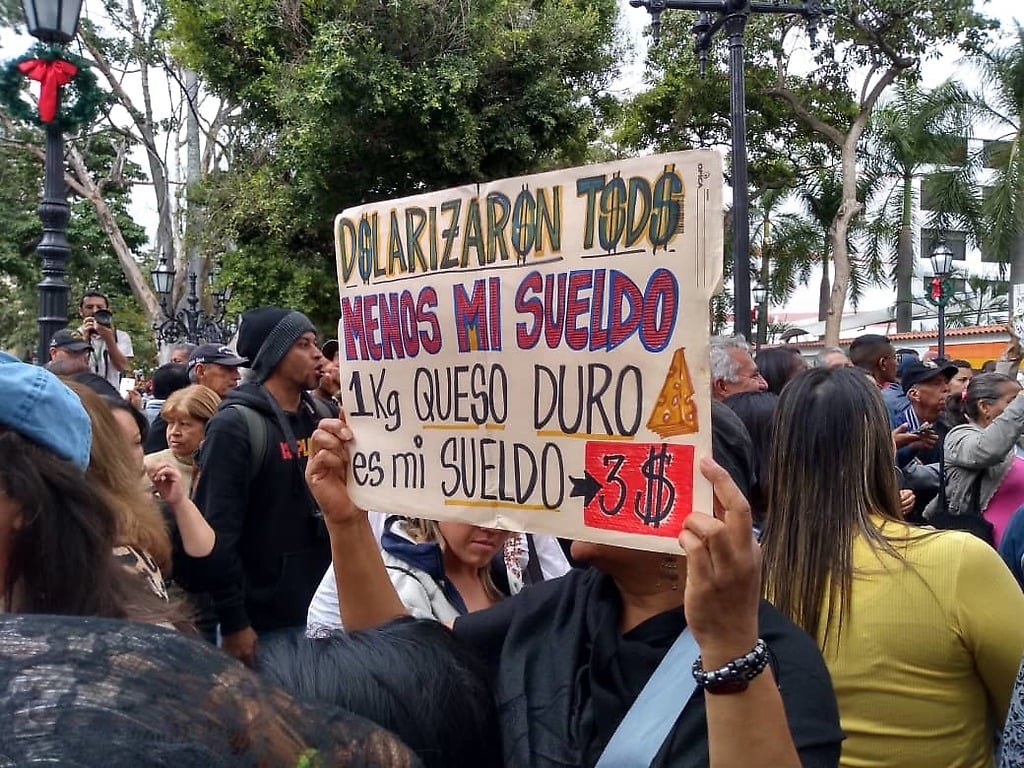 D$LARIZAR$N T$D$
MENOS MI SUELDO
1Kg QUESO DURO
es mi SUELDO → 3 $